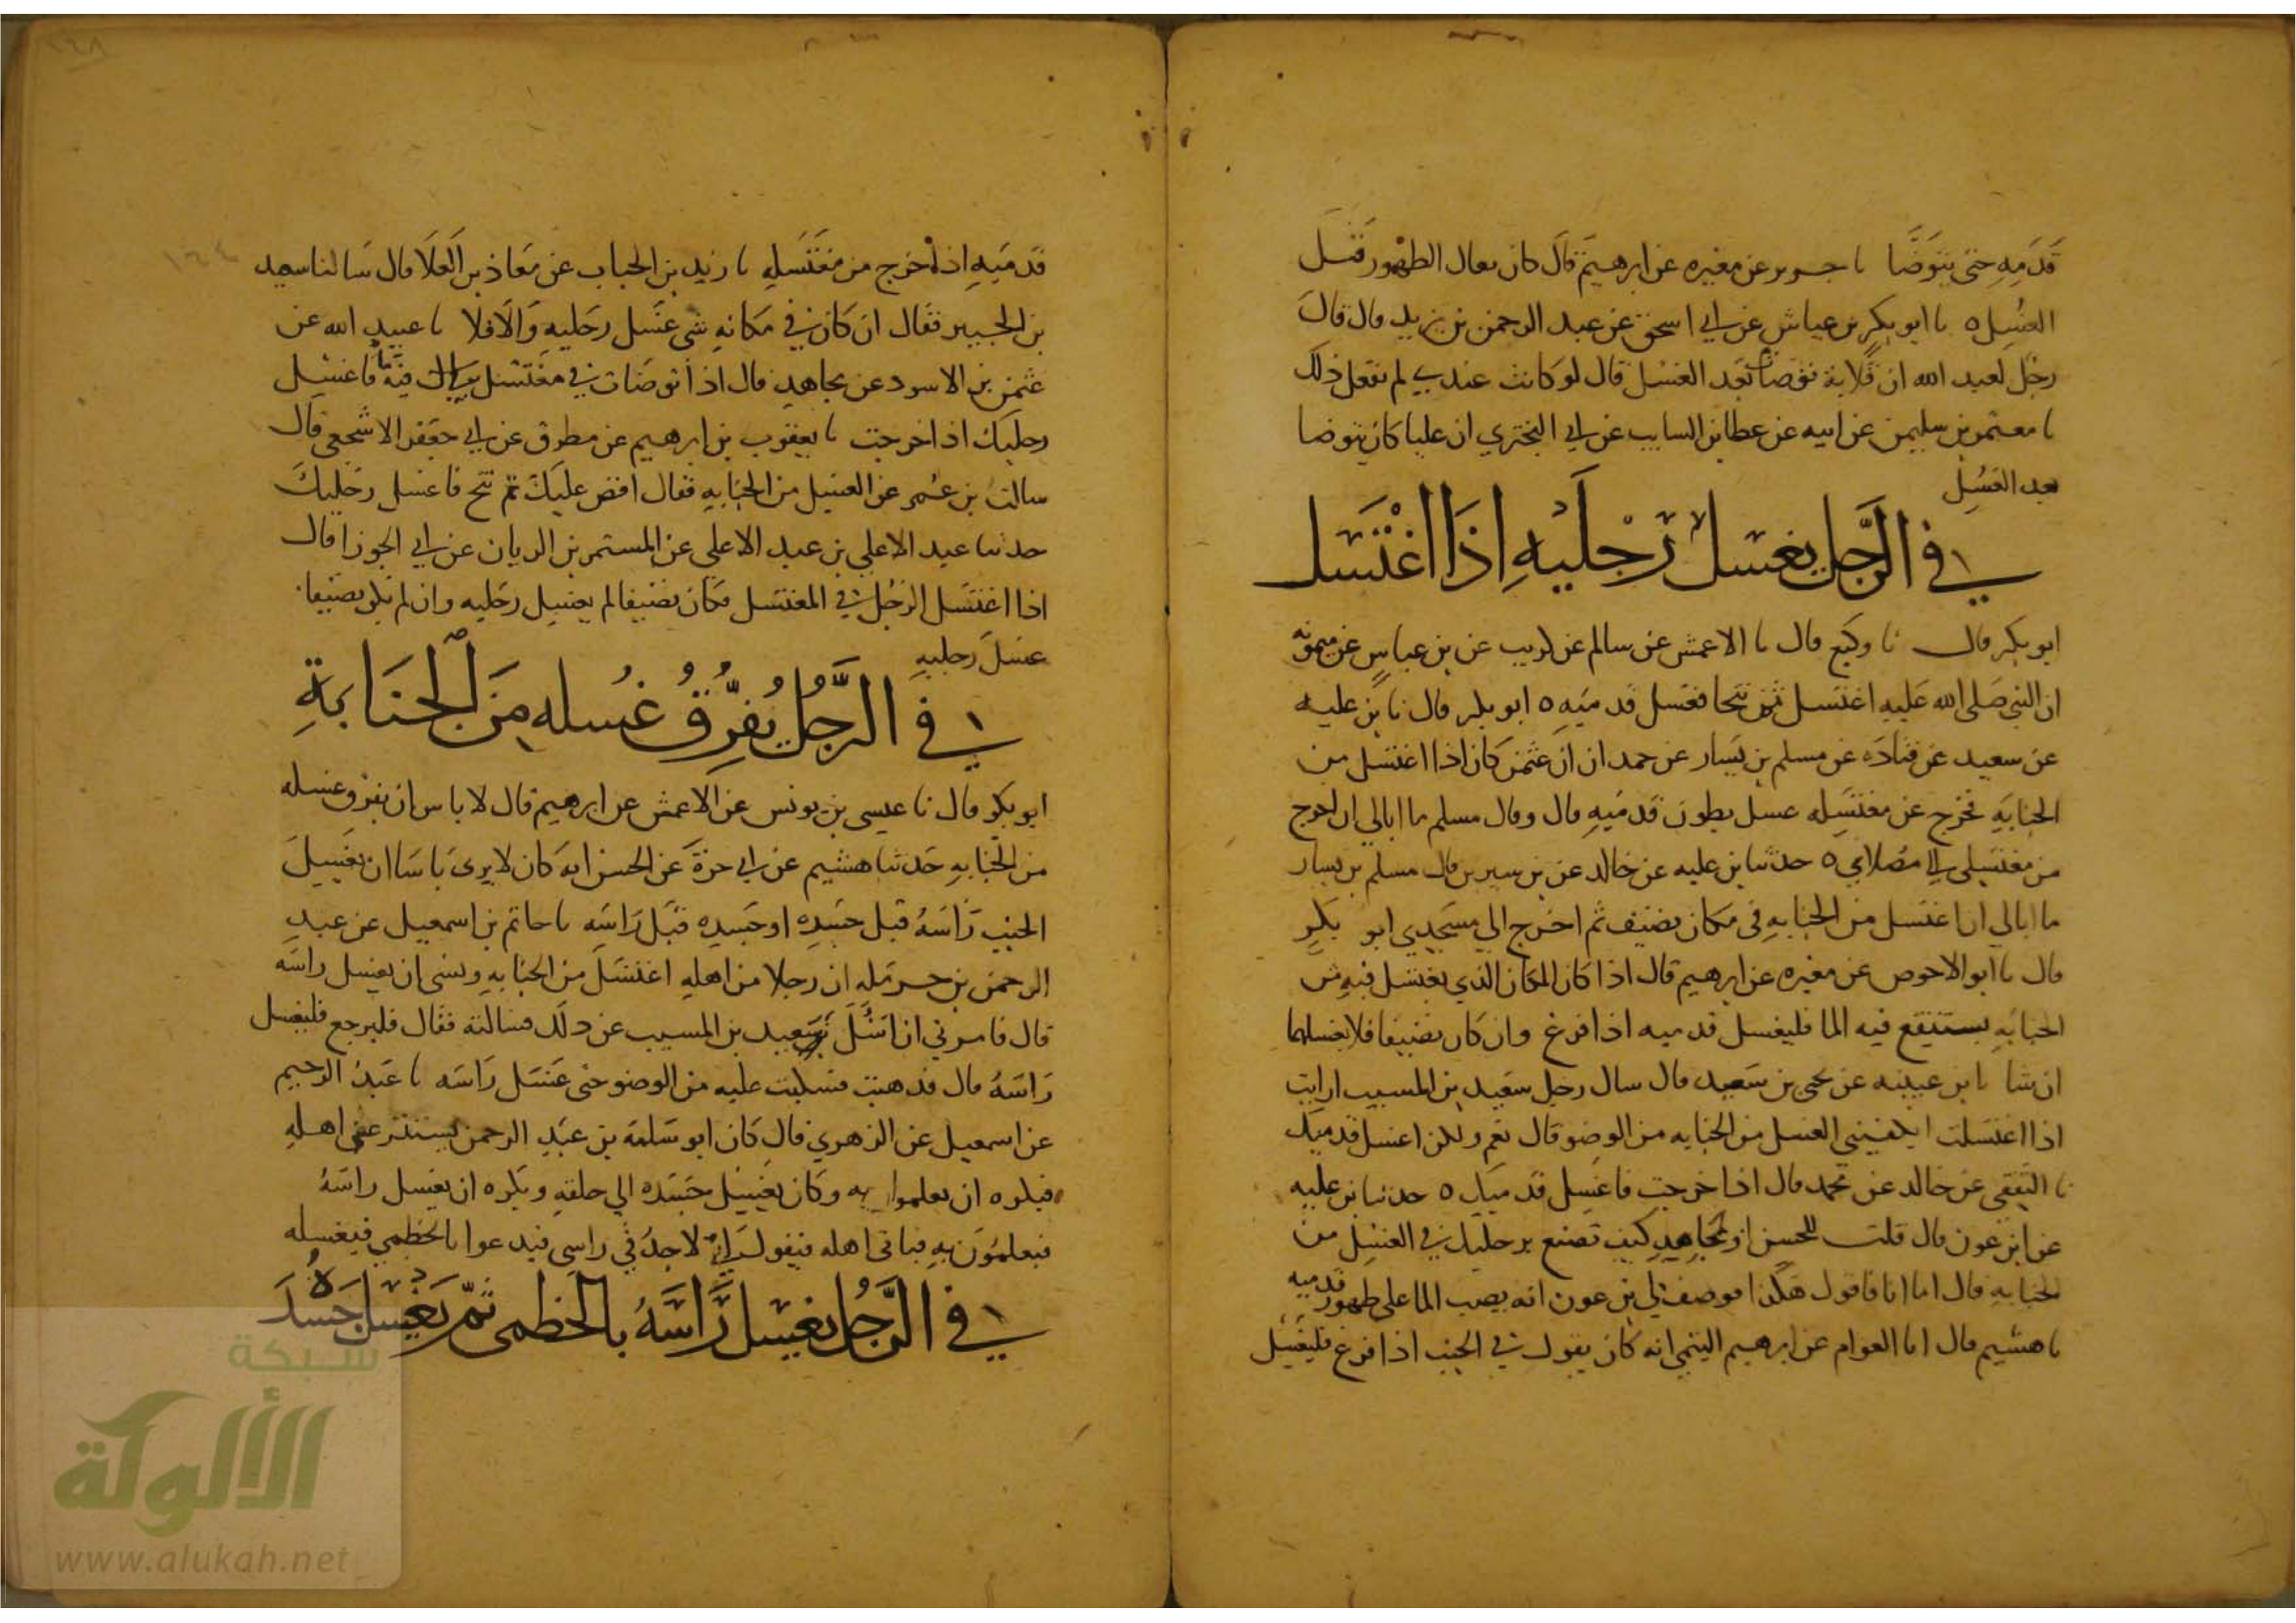 قدمه حتى يتوضا نا جرير عن مغيره عن ابرهيم قال كان يقال الطهور قبل
الغسل ٥ نا ابو بكر بن عياش عن ابي اسحق عن عبد الرحمن بن يزيد قال قال
رجل لعبد الله ان فلانة توضات بعد الغسل قال لو كانت عندي لم تفعل ذلك
نا معتمر بن سليمن عن ابيه عن عطا بن السايب عن ابي البختري ان عليا كان يتوضا
بعد الغسل
في الرجل يغسل رجليه اذا اغتسل
ابو بكر قال نا وكيع قال نا الاعمش عن سالم عن كريب عن بن عباس عن ميمونه
ان النبي صلى الله عليه اغتسل ثم تنحا فغسل قدميه ٥ ابو بكر قال نا بن عليه
عن سعيد عن قتاده عن مسلم بن يسار عن حمدان ان عثمن كان اذا اغتسل من
الجنابه فخرج عن مغتسله غسل بطون قدميه قال وقال مسلم ما ابالي ان اخرج
من مغتسلي الي مصلاي ٥ حدثنا بن عليه عن خالد عن بن سيرين قال مسلم بن يسار
ما ابالي ان اغتسل من الجنابه في مكان نضيف ثم اخرج الي مسجدي ابو بكر
قال نا ابو الاحوص عن مغيره عن ابرهيم قال اذا كان المكان الذي يغتسل فيه من
الجنابه يستنقع فيه الما فليغسل قدميه اذا فرغ وان كان نضيفا فلا يغسلهما
ان شا نا بن عيينه عن يحيى بن سعيد قال سال رجل سعيد بن المسيب ارايت
اذا اغتسلت ايكفيني الغسل من الجنابه من الوضو قال نعم ولكن اغسل قدميك
نا الثقفي عن خالد عن محمد قال اذا خرجت فاغسل قدميك ٥ حدثنا بن عليه
عن ابن عون قال قلت للحسن او لمجاهد كيف تصنع برجليك في الغسل من
الجنابه قال اما انا فاقول هكذا فوصف لي بن عون انه يصب الما على ظهور قدميه
نا هشيم قال انا العوام عن ابرهيم التيمي انه كان يقول في الجنب اذا فرغ فليغسل
قدميه اذا خرج من مغتسله نا زيد بن الحباب عن معاذ بن العلا قال سالنا سعيد
بن الجبير فقال ان كان في مكانه شي غسل رجليه والا فلا نا عبيد الله عن
عثمن بن الاسود عن مجاهد قال اذا توضات في مغتسل يبال فيه فاغسل
رجليك اذا خرجت نا يعقوب بن ابرهيم عن مطرق عن ابي جعفر الاشجعي قال
سالت بن عمر عن الغسل من الجنابه فقال افض عليك ثم تنح فاغسل رجليك
حدثنا عبد الاعلى بن عبد الاعلى عن المستمر بن الريان عن ابي الجوزا قال
اذا اغتسل الرجل في المغتسل فكان نضيفا لم يغسل رجليه وان لم يكن نضيفا
غسل رجليه
في الرجل يفرق غسله من الجنابة
ابو بكر قال نا عيسى بن يونس عن الاعمش عن ابرهيم قال لا باس ان يفرق غسله
من الجنابه حدثنا هشيم عن ابي حرة عن الحسن انه كان لا يرى باسا ان يغسل
الجنب راسه قبل جسده او جسده قبل راسه نا حاتم بن اسمعيل عن عبد
الرحمن بن حرمله ان رجلا من اهله اغتسل من الجنابه ونسي ان يغسل راسه
قال فامرني ان اسئل سعيد بن المسيب عن ذلك فسالته فقال فليرجع فليغسل
راسه قال فذهبت فسكبت عليه من الوضو حتى غسل راسه نا عبد الرحيم
عن اسمعيل عن الزهري قال كان ابو سلمة بن عبد الرحمن يستتر على اهله
فيكره ان يعلموا به وكان يغسل جسده الي حلقه ويكره ان يغسل راسه
فيعلمون به فياتى اهله فيقول اني لاجد في راسي فيدعوا بالخطمي فيغسله
في الرجل يغسل راسه بالخطمى ثم يغسل جسده
شبكة
الألوكة
www.alukah.net